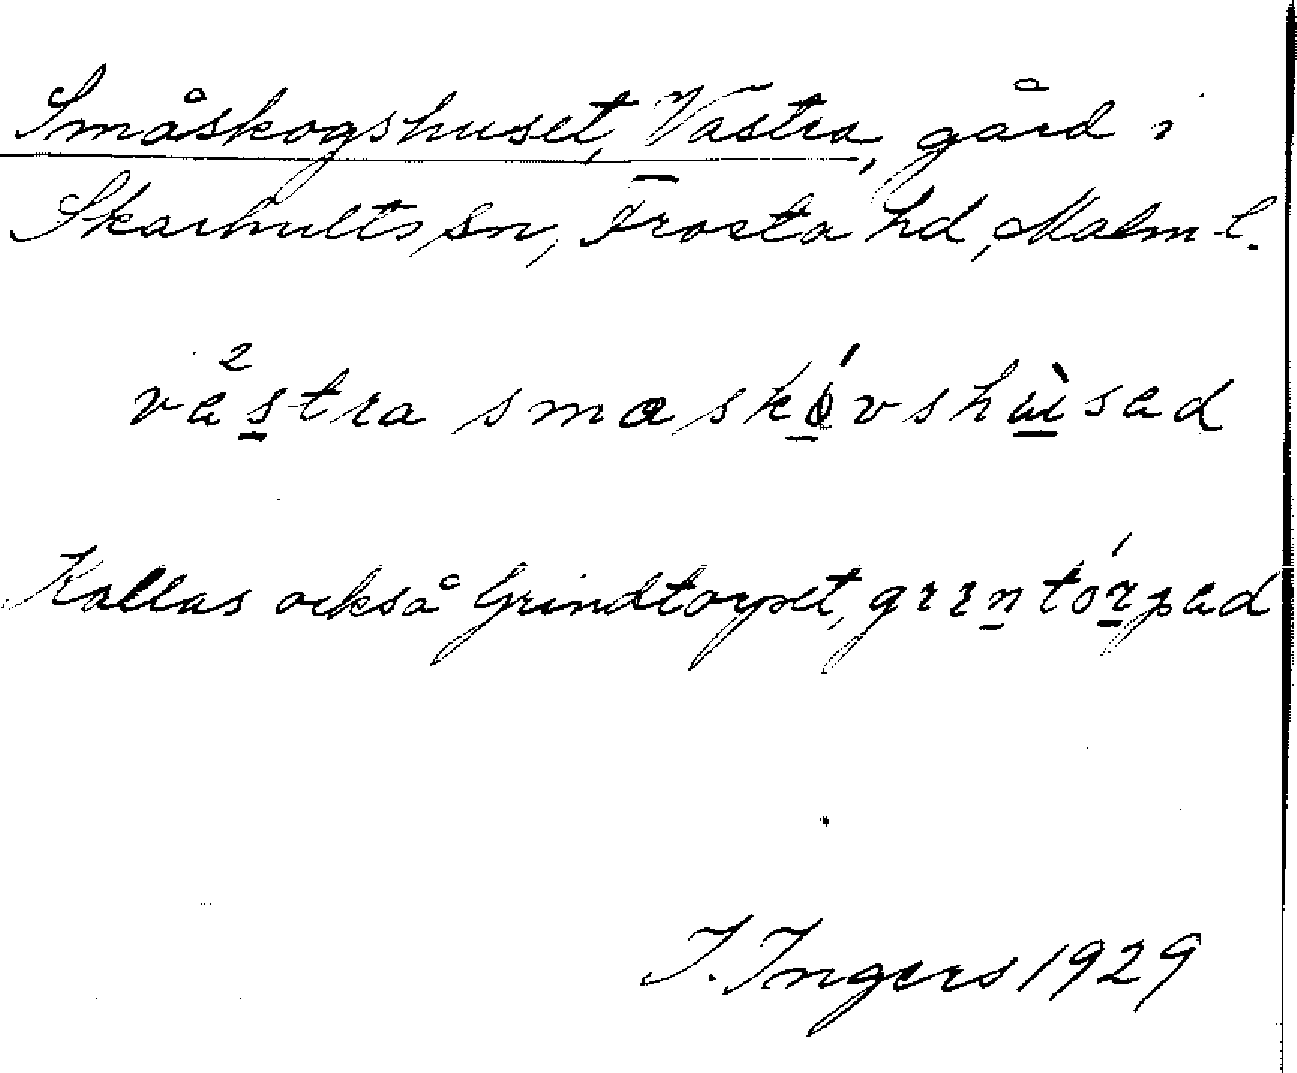 Småskogshuset, Västra, gård i
Skarhults sn, Frosta hd, Malm l.
västra smaskóvshùsad
Kallas också Grindtorpet, grɪntórpad
I. Ingers 1929